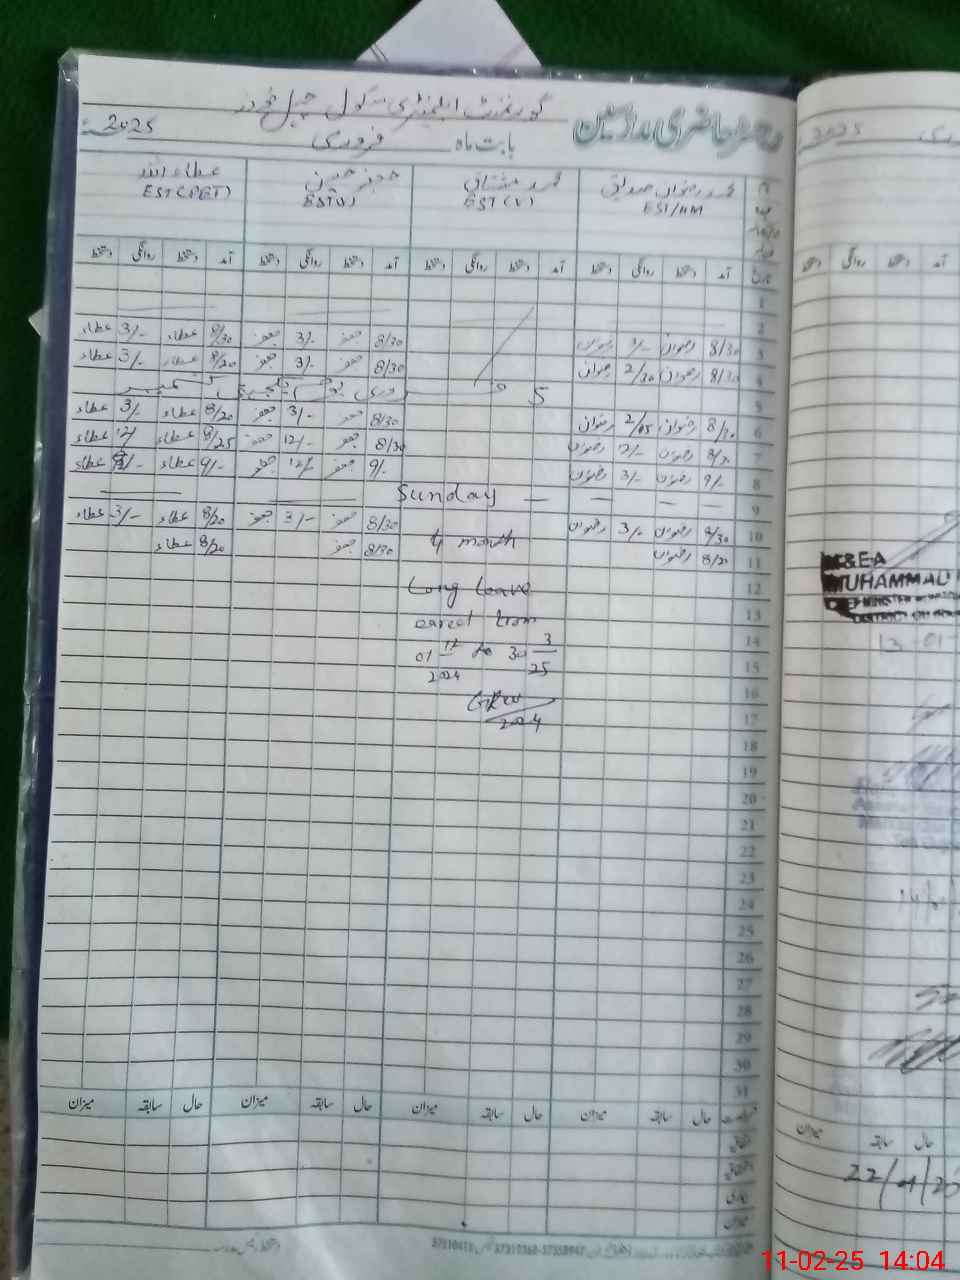 رجسٹر حاضری مدرسین گورنمنٹ ایلیمنٹری سکول
بابت ماہ فروری 2025
محمد رضوان صدیق محمد مشتاق عطاء اللہ
EST/HM EST(V) EST(V) EST(PET)
آمد دستخط روانگی دستخط آمد دستخط روانگی دستخط آمد دستخط روانگی دستخط آمد دستخط روانگی دستخط
1
2
3 8/30 رضوان 3/- رضوان 8/30 جعفر 3/- جعفر 8/30 عطاء 3/- عطاء
4 8/30 رضوان 2/30 رضوان 8/30 جعفر 3/- جعفر 8/20 عطاء 3/- عطاء
5 5 فروری یوم یکجہتی کشمیر
6 8/30 رضوان 2/05 رضوان 8/30 جعفر 3/- جعفر 8/20 عطاء 3/- عطاء
7 رضوان 12/- رضوان 8/30 جعفر 12/- جعفر 8/25 عطاء 12/ عطاء
8 9/- رضوان 3/- رضوان 9/- جعفر 12/- جعفر 9/- عطاء عطاء
9 — — — Sunday
10 8/30 رضوان 3/- رضوان 8/30 جعفر 3/- جعفر 8/20 عطاء 3/- عطاء
11 8/20 رضوان 4 month 8/30 جعفر 8/20 عطاء
12 Long leave
13
14 01 12/2024 to 30 3/25
15
16
17 2024
18
19
20
21
22
23
24
25
26
27
28
29
30
31
حال سابقہ میزان حال سابقہ میزان حال سابقہ میزان حال سابقہ میزان
اتفاقی
بیماری
میزان
2025
آمد دستخط روانگی دستخط
M&EA
MUHAMMAD
13-01-
حال سابقہ میزان
22/01/20
11-02-25 14:04